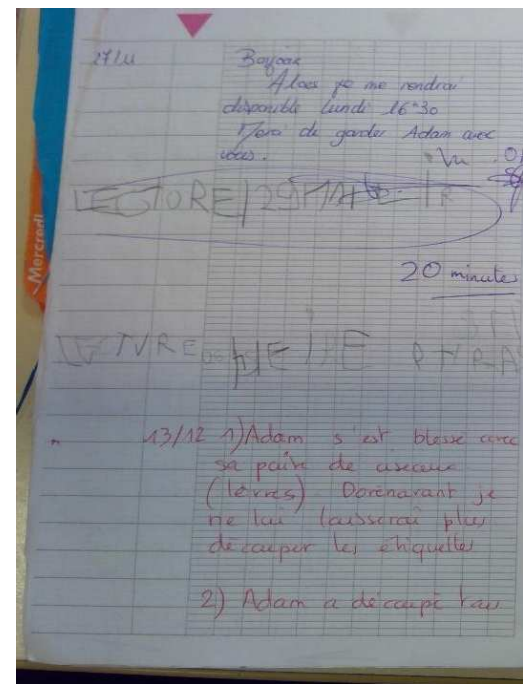 Mercredi
27/11 Bonjour
Alors je me rendrai
disponible lundi 16h30
Merci de garder Adam avec
vous.
Vu
LECTURE
20 minutes
LECTURE MÊME PHRA
13/12 1) Adam s'est blessé avec
sa paire de ciseaux
(lèvres) Dorénavant je
ne lui laisserai plus
découper les étiquettes
2) Adam a découpé